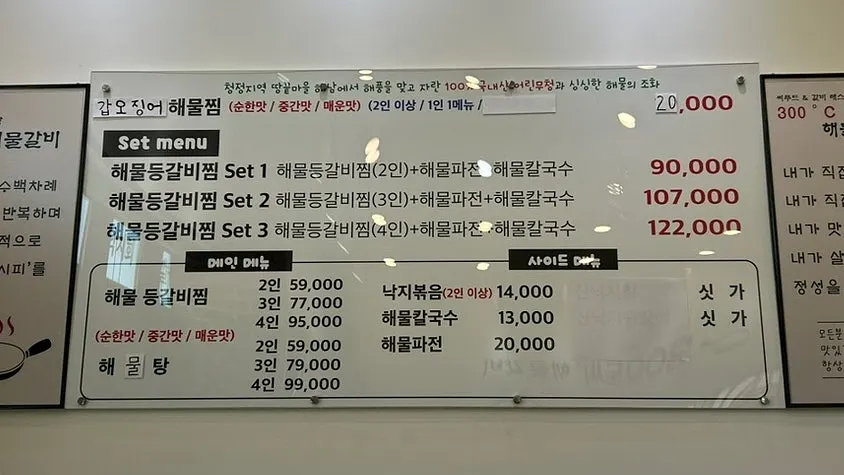 청정지역 땅끝마을 해남에서 해풍을 맞고 자란 100% 국내산 어린무청과 싱싱한 해물의 조화
갑오징어 해물찜 (순한맛 / 중간맛 / 매운맛) (2인 이상 / 1인 1메뉴 / 20,000
Set menu
해물등갈비찜 Set 1 해물등갈비찜(2인)+해물파전+해물칼국수 90,000
해물등갈비찜 Set 2 해물등갈비찜(3인)+해물파전+해물칼국수 107,000
해물등갈비찜 Set 3 해물등갈비찜(4인)+해물파전+해물칼국수 122,000
메인 메뉴
해물 등갈비찜
2인 59,000
3인 77,000
4인 95,000
(순한맛 / 중간맛 / 매운맛)
해물탕
2인 59,000
3인 79,000
4인 99,000
사이드 메뉴
낙지볶음(2인 이상) 14,000 싯 가
해물칼국수 13,000 싯 가
해물파전 20,000
해물갈비
수백차례
반복하며
적으로
시피'를
300°C
해물
내가 직접
내가 직접
내가 맛
내가 살
정성을
모든분
맛있
항상